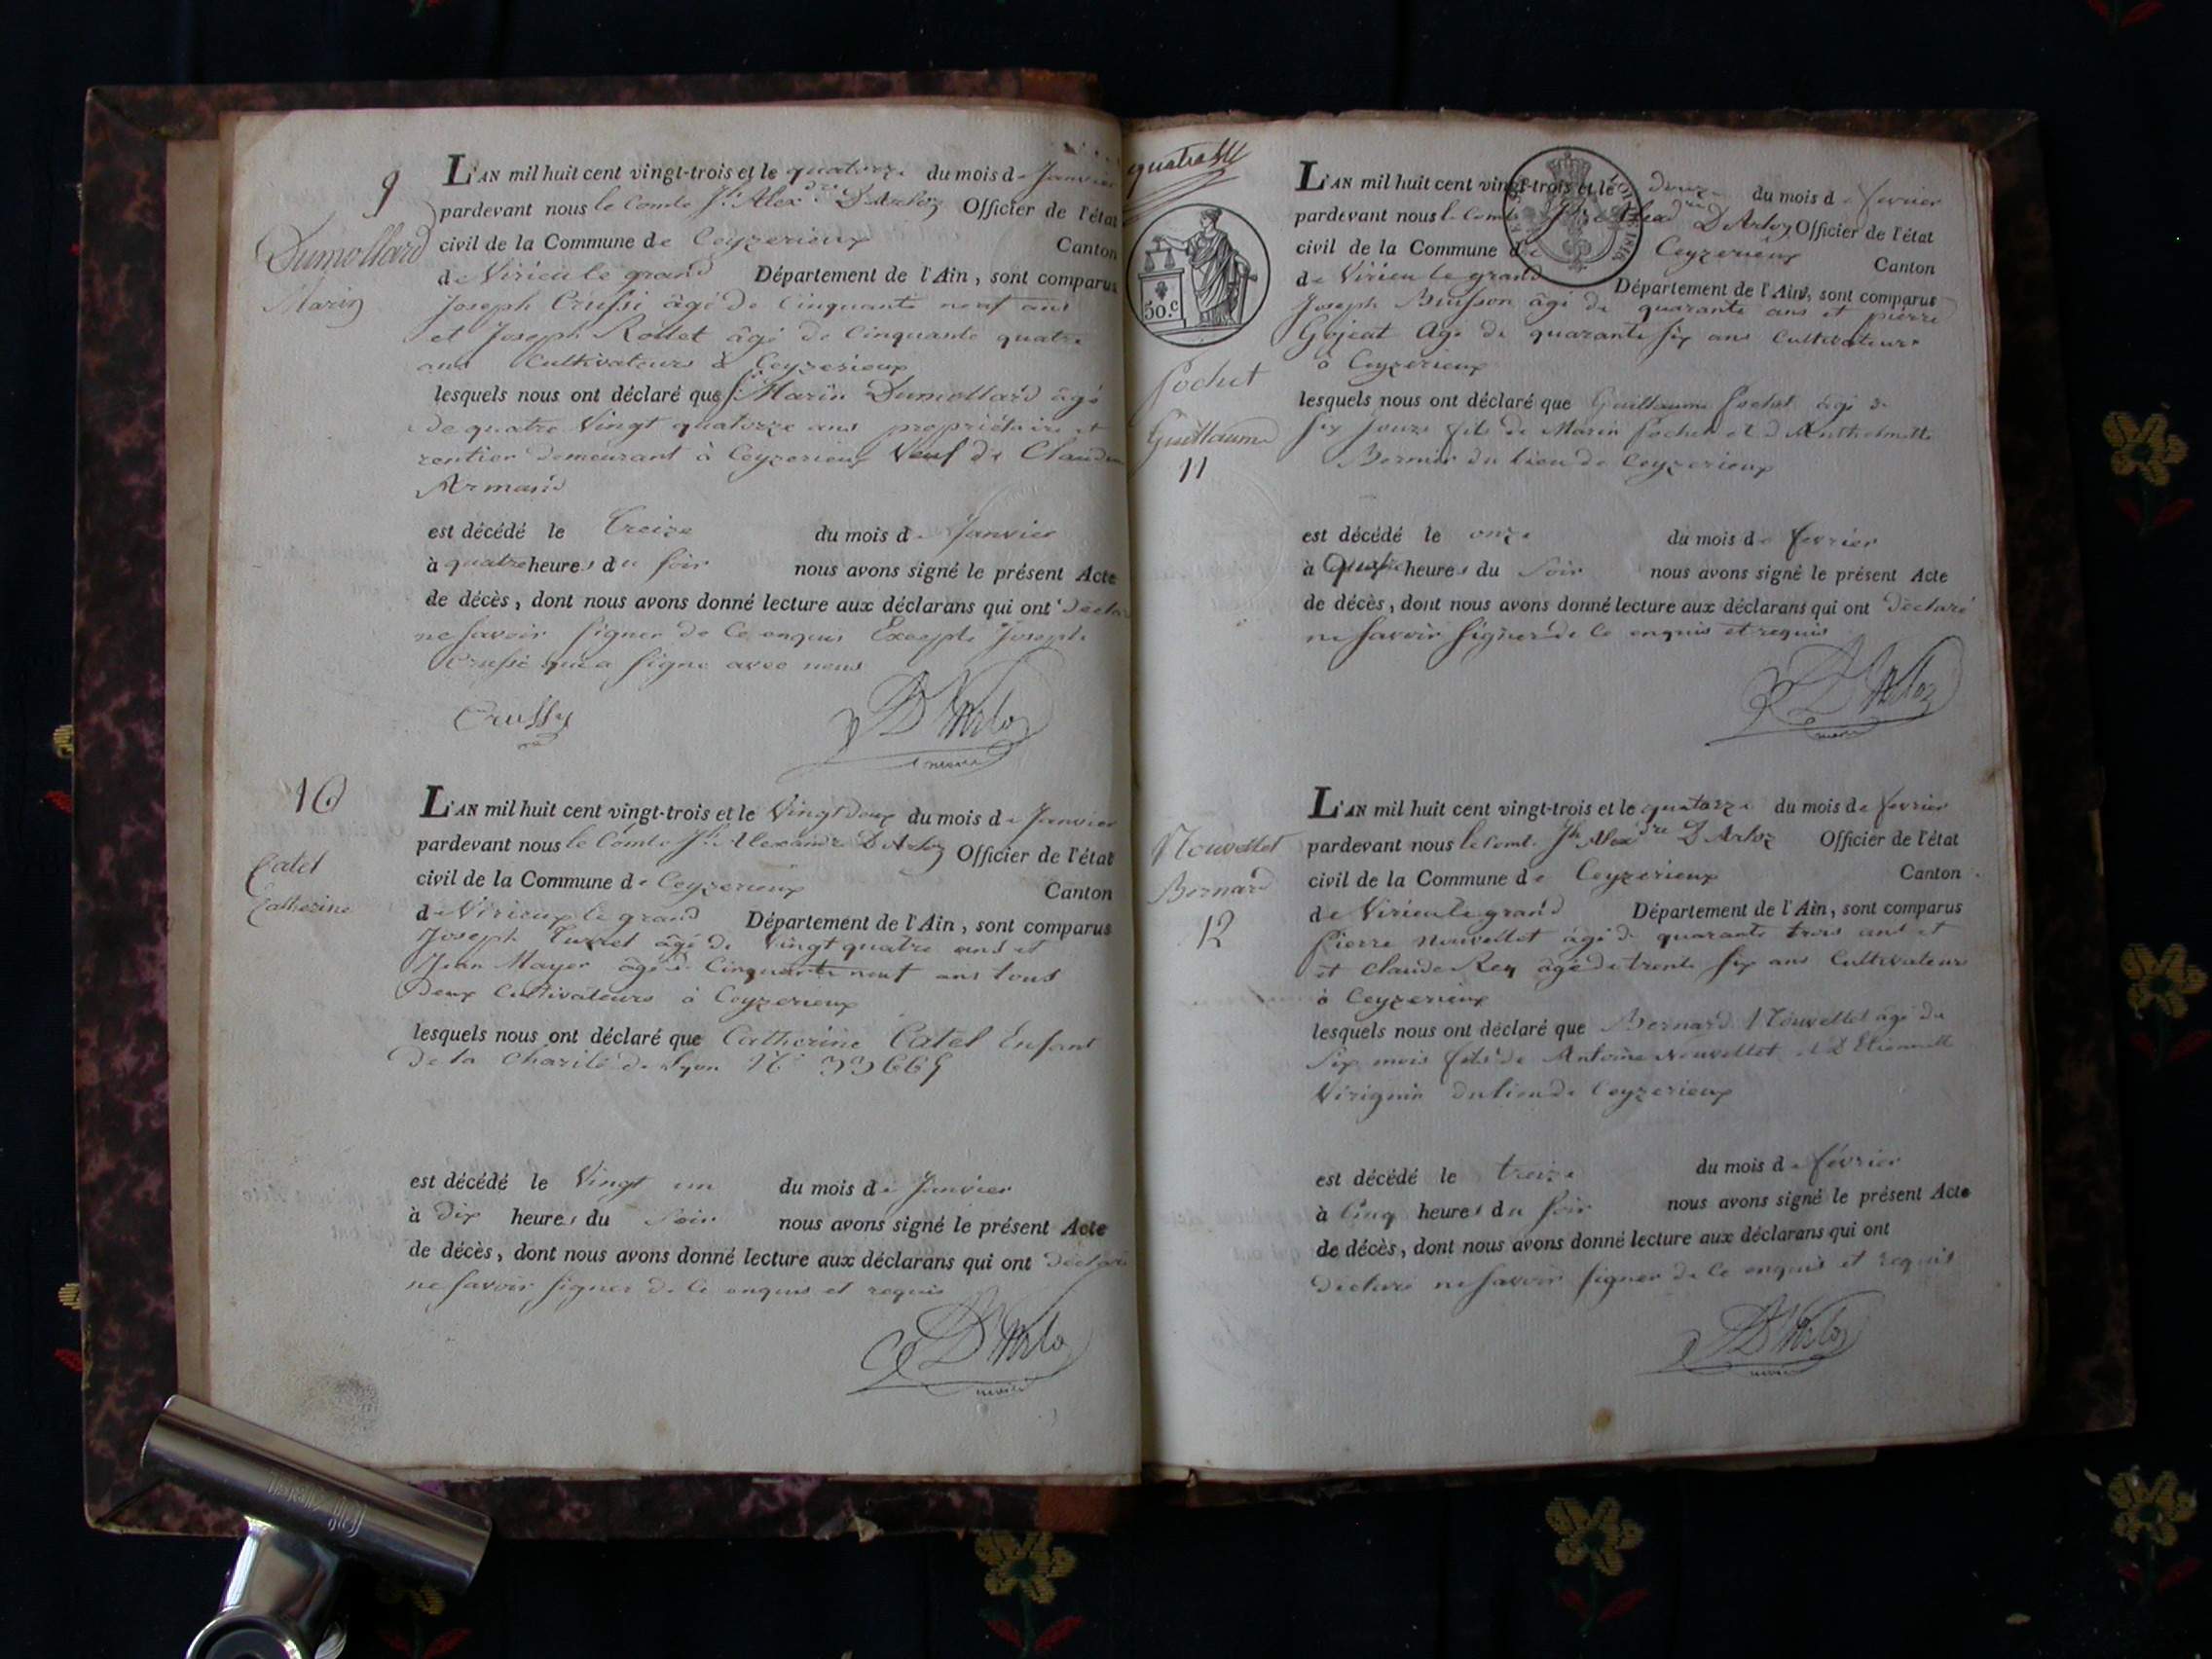 9
Dumollard
Marin
L'AN mil huit cent vingt-trois et le quatorze du mois de Janvier
pardevant nous le Comte Jh. Alexdre D'Arloz Officier de l'état
civil de la Commune de Ceyzerieux Canton
de Virieu le grand Département de l'Ain, sont comparus
Joseph Crussi âgé de Cinquante neuf ans
et Joseph Rollet âgé de Cinquante quatre
ans Cultivateurs à Ceyzerieux
lesquels nous ont déclaré que Sr. Marin Dumollard âgé
de quatre Vingt quatorze ans propriétaire et
rentier demeurant à Ceyzerieux Veuf de Claudine
Armand
est décédé le Treize du mois de Janvier
à quatre heures du soir nous avons signé le présent Acte
de décès, dont nous avons donné lecture aux déclarans qui ont déclaré
ne savoir signer de ce enquis Excepté Joseph
Crussi qui a signé avec nous
Crussy
D'Arloz
10
Catel
Catherine
L'AN mil huit cent vingt-trois et le Vingt deux du mois de Janvier
pardevant nous le Comte Jh. Alexandre D'Arloz Officier de l'état
civil de la Commune de Ceyzerieux Canton
de Virieux le grand Département de l'Ain, sont comparus
Joseph Turrel âgé de Vingt quatre ans et
Jean Mayer âgé de Cinquante neuf ans tous
deux Cultivateurs à Ceyzerieux
lesquels nous ont déclaré que Catherine Catel Enfant
de la Charité de Lyon N° 33669
est décédé le Vingt un du mois de Janvier
à dix heures du Soir nous avons signé le présent Acte
de décès, dont nous avons donné lecture aux déclarans qui ont déclaré
ne savoir signer de ce enquis et requis
D'Arloz
quatre
50.c
Pochet
Guillaume
11
L'AN mil huit cent vingt-trois et le douze du mois de fevrier
pardevant nous le Comte Jh Alexdre D'Arloz Officier de l'état
civil de la Commune de Ceyzerieux Canton
de Virieu le grand Département de l'Ain, sont comparus
Joseph Buisson âgé de quarante ans et pierre
Gojeat Age de quarante six ans Cultivateurs
à Ceyzerieux
lesquels nous ont déclaré que Guillaume Pochet âgé de
six jours fils de Marin Pochet et d'Anthelmette
Bernier du lieu de Ceyzerieux
est décédé le onze du mois de fevrier
à heures du Soir nous avons signé le présent Acte
de décès, dont nous avons donné lecture aux déclarans qui ont déclaré
ne savoir signer de ce enquis et requis
D'Arloz
Nouvellet
Bernard
12
L'AN mil huit cent vingt-trois et le quatorze du mois de fevrier
pardevant nous le Comte Jh Alexdre D'Arloz Officier de l'état
civil de la Commune de Ceyzerieux Canton
de Virieu le grand Département de l'Ain, sont comparus
Pierre Nouvellet âgé de quarante trois ans et
et Claude Rey âgé de trente six ans Cultivateurs
à Ceyzerieux
lesquels nous ont déclaré que Bernard Nouvellet âgé de
Six mois fils de Antoine Nouvellet et d'Etiennette
Virignin du lieu de Ceyzerieux
est décédé le treize du mois de février
à Cinq heures du soir nous avons signé le présent Acte
de décès, dont nous avons donné lecture aux déclarans qui ont
déclaré ne savoir signer de ce enquis et requis
D'Arloz